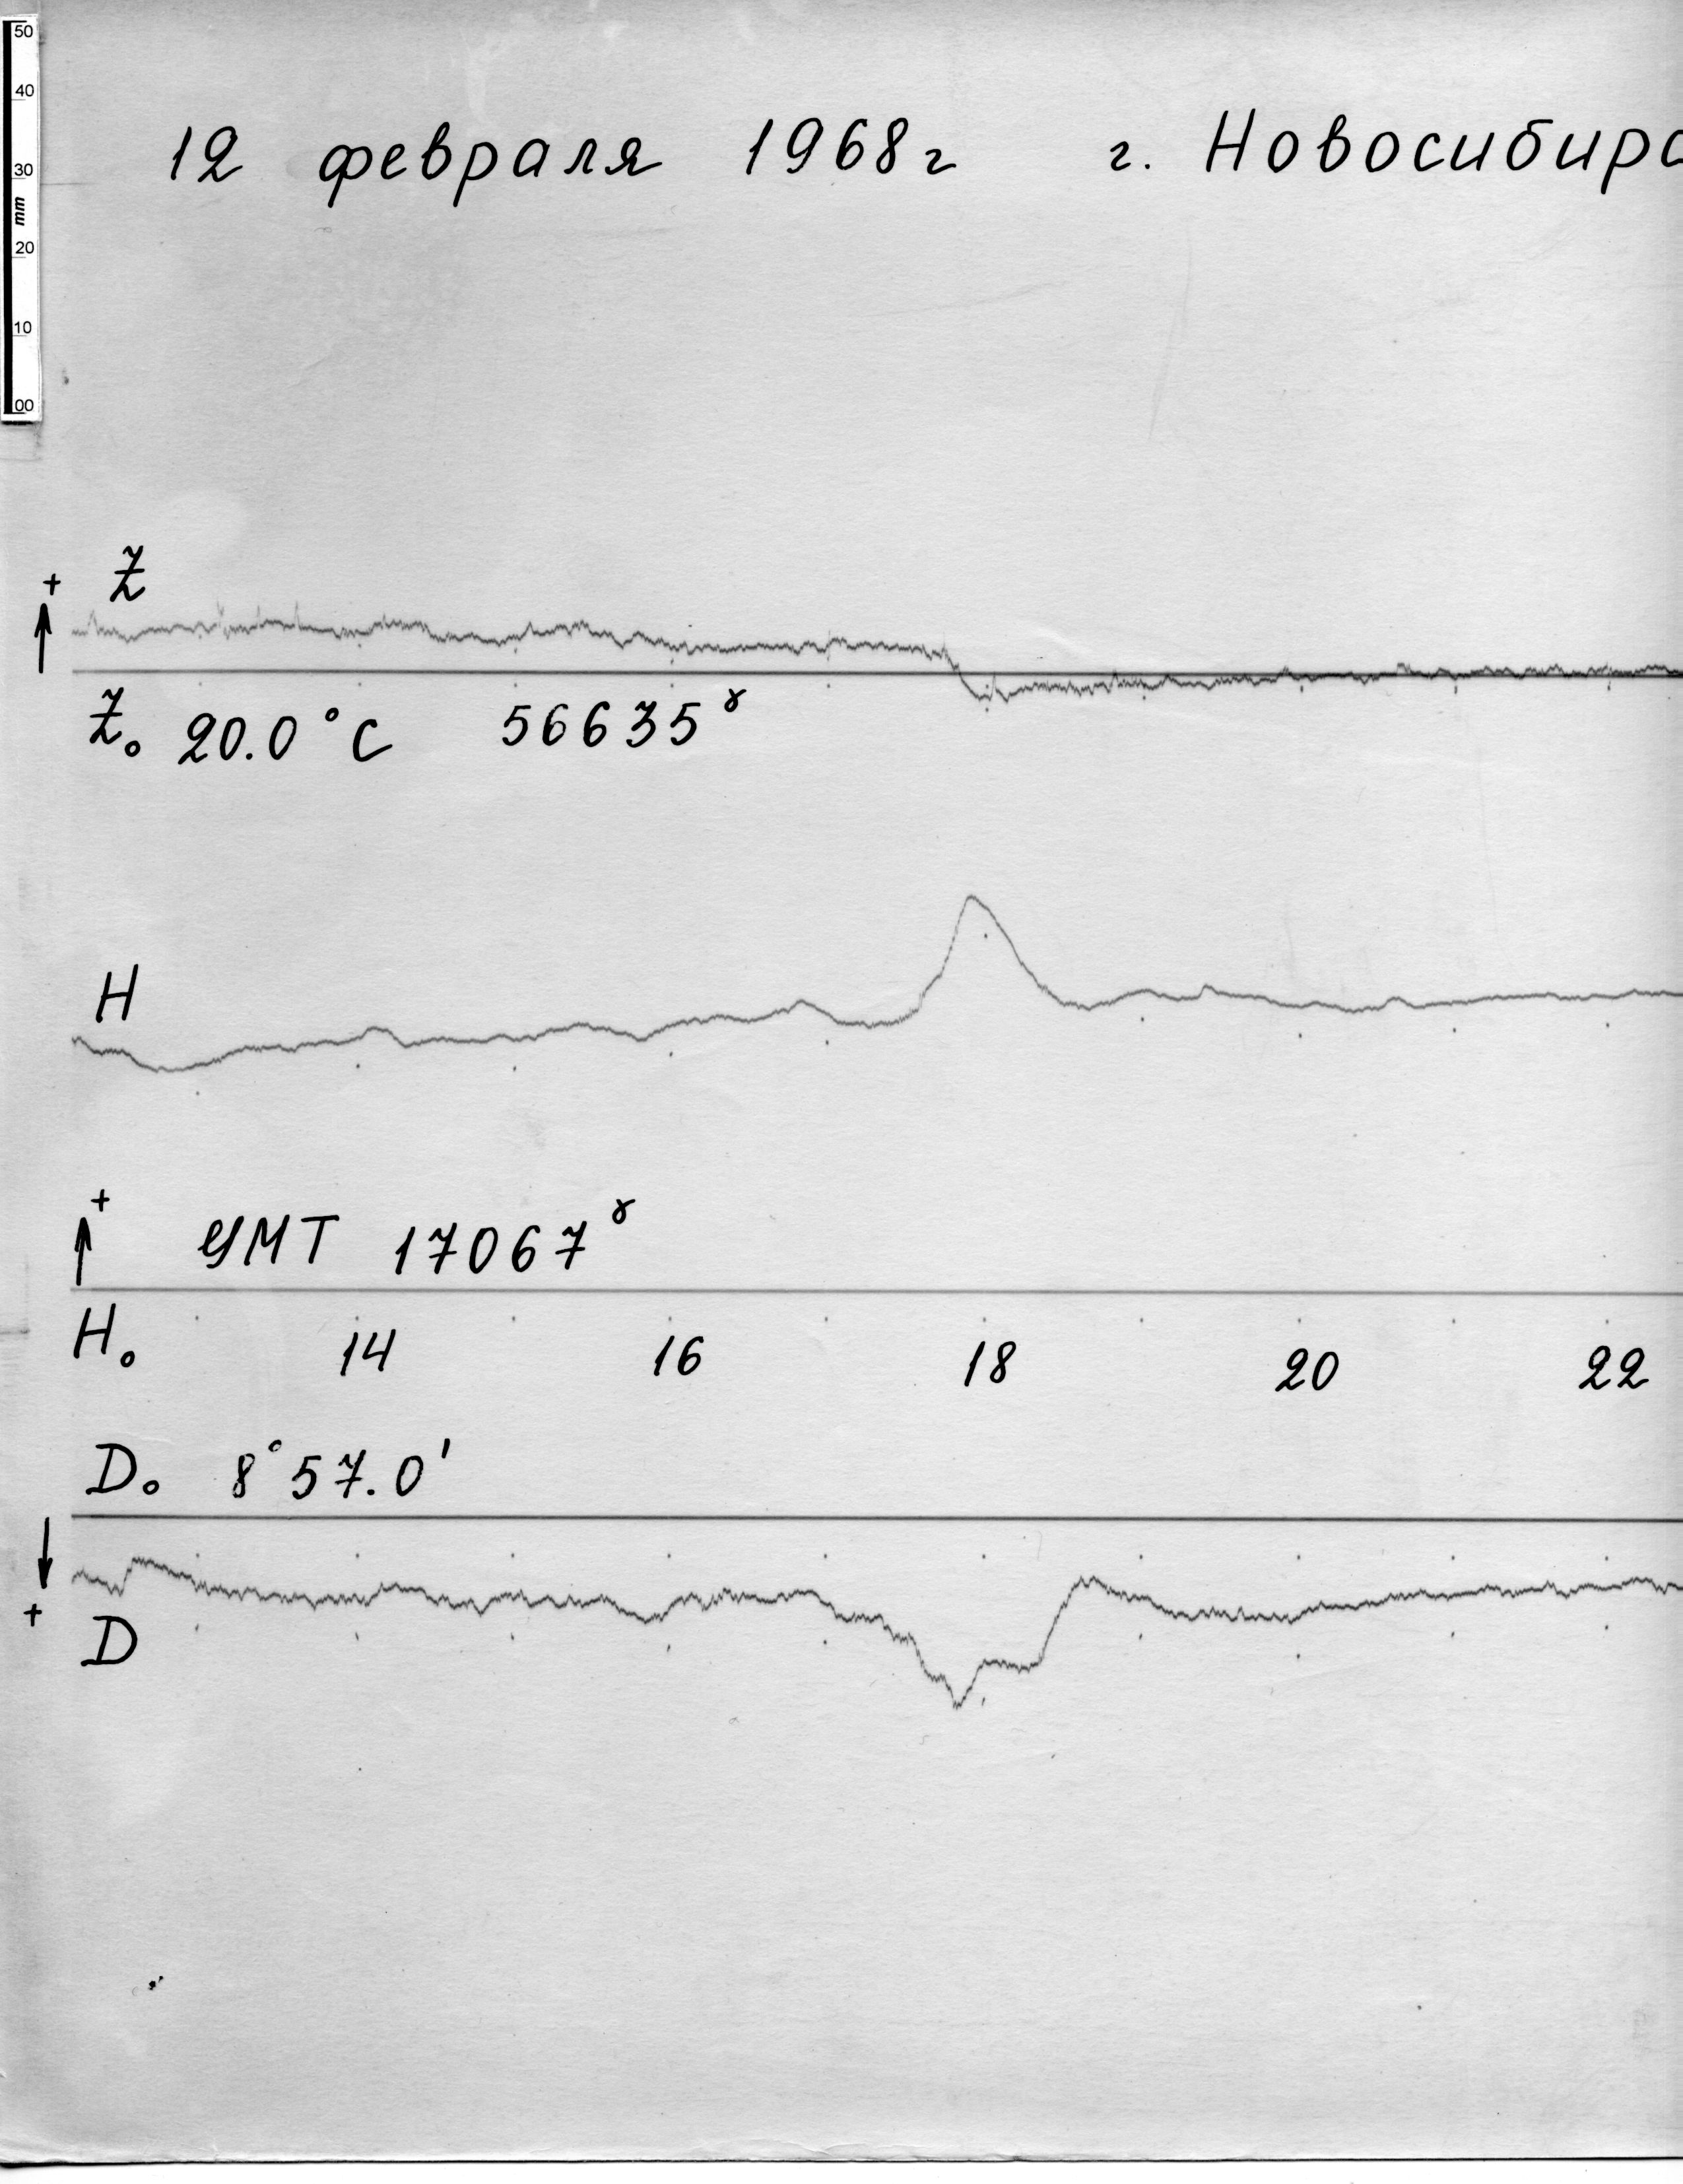 50
40
30
mm
20
10
00
12 февраля 1968г г. Новосибирс
+ Z
Z₀ 20.0°C 56635ᵞ
H
+
УМТ 17067ᵞ
H₀ 14 16 18 20 22
D₀ 8°57.0'
+
D